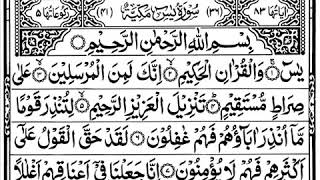 اٰیاتها ۸۳ (۳۶) سُوْرَةُ یٰسٓ مَكِّیَّةٌ (۴۱) رکوعاتها ۵
بِسْمِ اللّٰهِ الرَّحْمٰنِ الرَّحِیْمِ
یٰسٓ ۚ وَ الْقُرْاٰنِ الْحَكِیْمِ ۙ اِنَّكَ لَمِنَ الْمُرْسَلِیْنَ ۙ عَلٰی
صِرَاطٍ مُّسْتَقِیْمٍ ؕ تَنْزِیْلَ الْعَزِیْزِ الرَّحِیْمِ ۙ لِتُنْذِرَ قَوْمًا
مَّاۤ اُنْذِرَ اٰبَآؤُهُمْ فَهُمْ غٰفِلُوْنَ ۶ لَقَدْ حَقَّ الْقَوْلُ عَلٰۤی
اَكْثَرِهِمْ فَهُمْ لَا یُؤْمِنُوْنَ ۷ اِنَّا جَعَلْنَا فِیْۤ اَعْنَاقِهِمْ اَغْلٰلًا